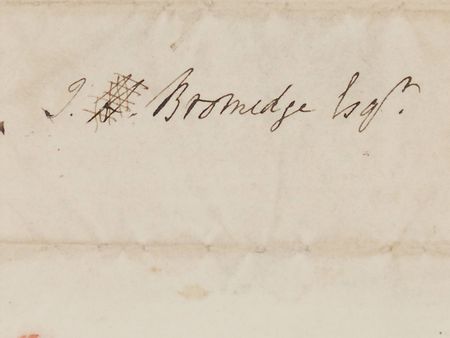 J. Bromedge Esqr.